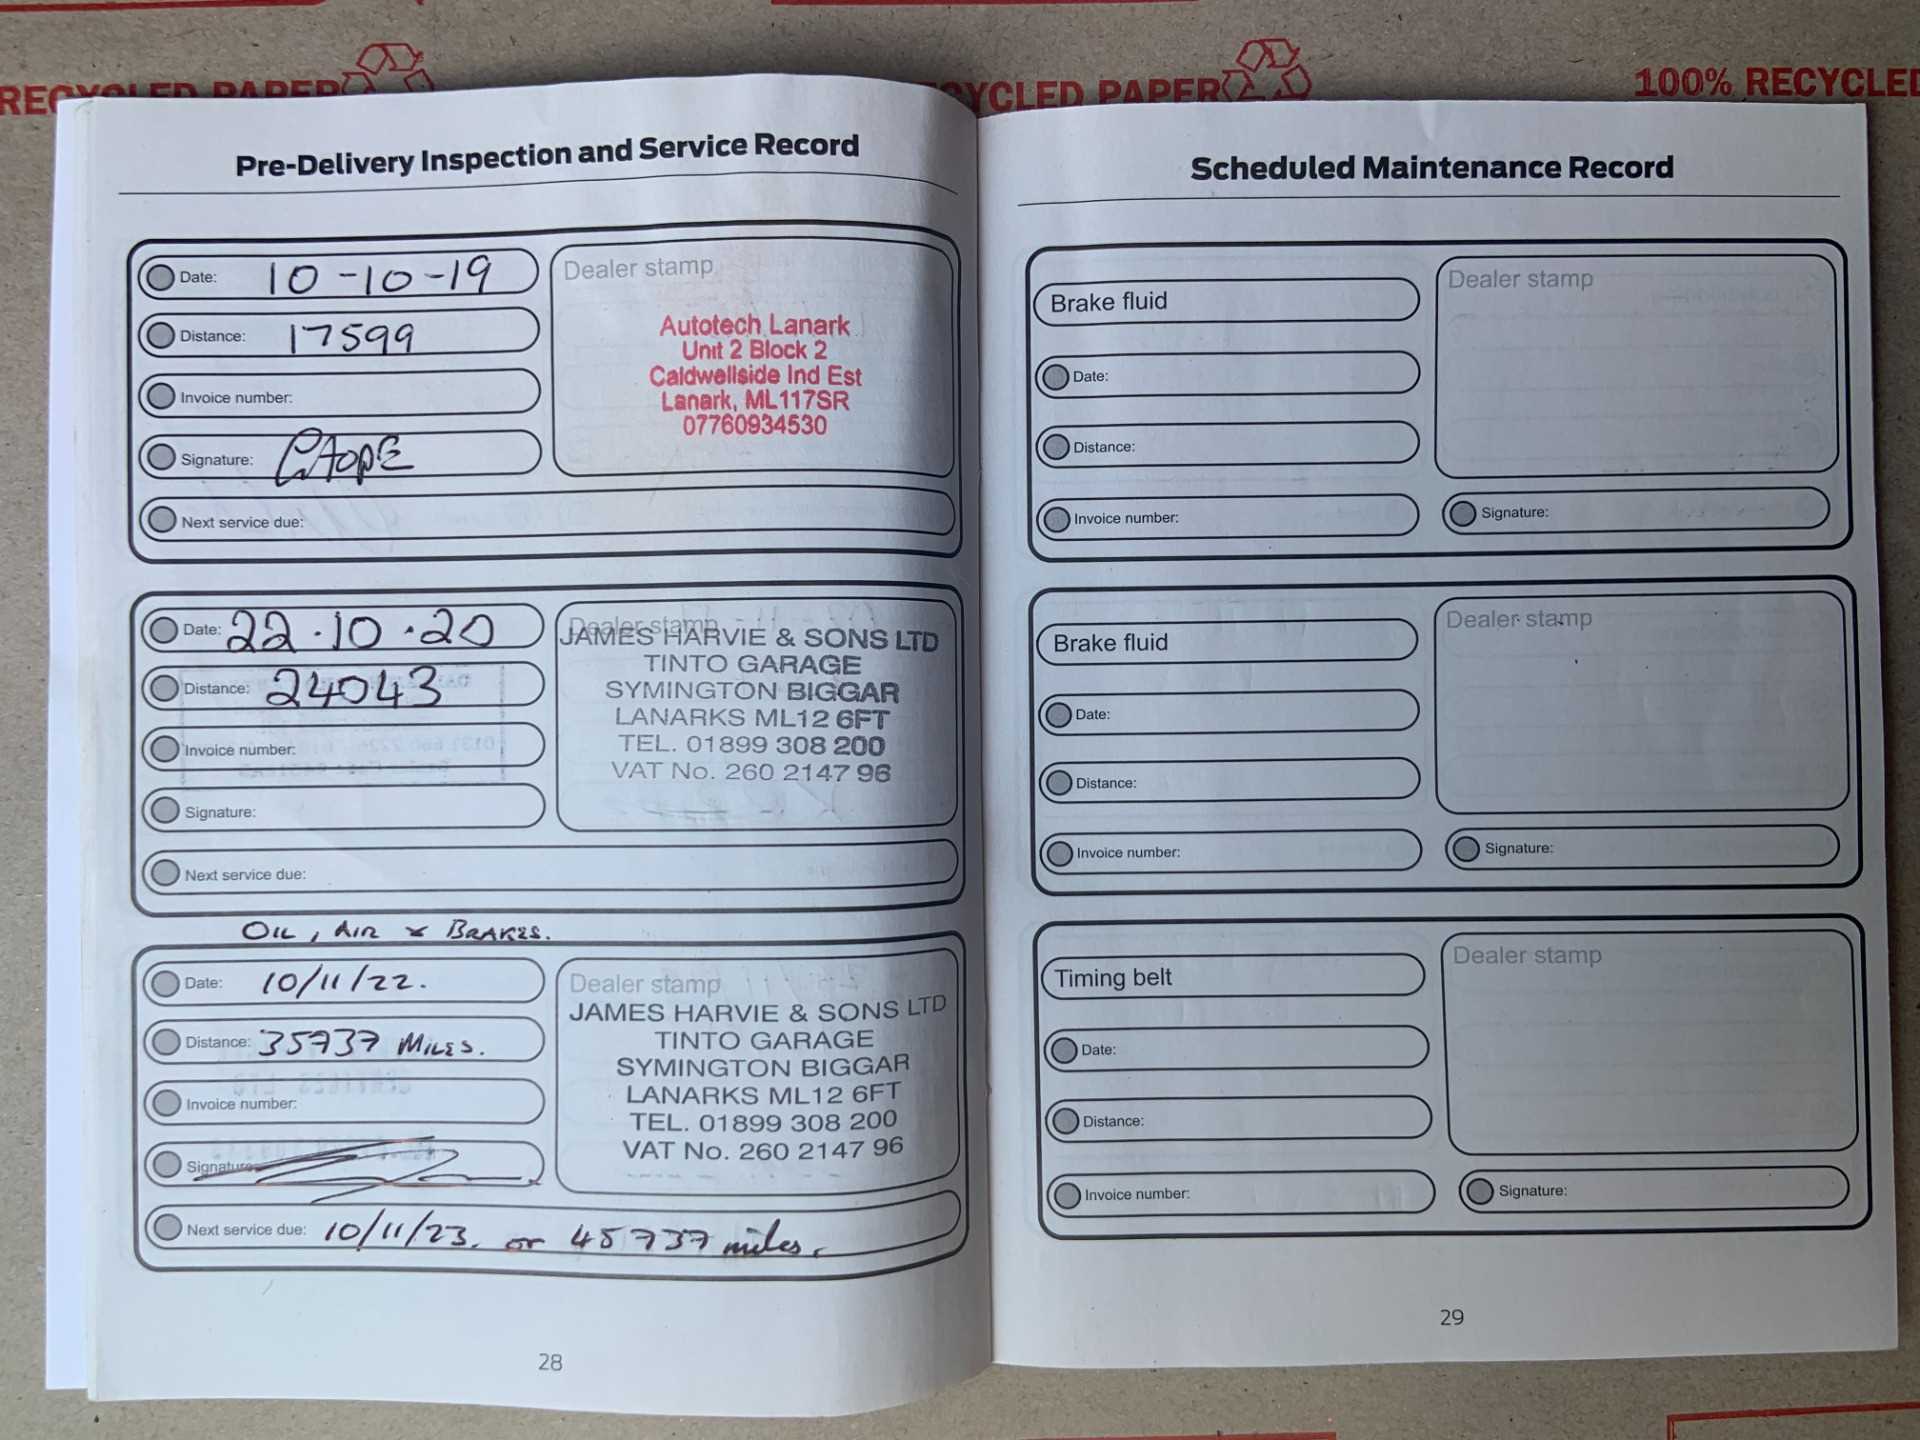 RECYCLED PAPER
RECYCLED PAPER
100% RECYCLED
Pre-Delivery Inspection and Service Record
Date: 10-10-19
Distance: 17599
Invoice number:
Signature:
Next service due:
Dealer stamp
Autotech Lanark
Unit 2 Block 2
Caldwellside Ind Est
Lanark, ML117SR
07760934530
Date: 22.10.20
Distance: 24043
Invoice number:
Signature:
Next service due:
Dealer stamp
JAMES HARVIE & SONS LTD
TINTO GARAGE
SYMINGTON BIGGAR
LANARKS ML12 6FT
TEL. 01899 308 200
VAT No. 260 2147 96
OIL, AIR & BRAKES.
Date: 10/11/22.
Distance: 35737 MILES.
Invoice number:
Signature
Next service due: 10/11/23. or 45737 miles.
Dealer stamp
JAMES HARVIE & SONS LTD
TINTO GARAGE
SYMINGTON BIGGAR
LANARKS ML12 6FT
TEL. 01899 308 200
VAT No. 260 2147 96
28
Scheduled Maintenance Record
Brake fluid
Date:
Distance:
Invoice number:
Dealer stamp
Signature:
Brake fluid
Date:
Distance:
Invoice number:
Dealer stamp
Signature:
Timing belt
Date:
Distance:
Invoice number:
Dealer stamp
Signature:
29